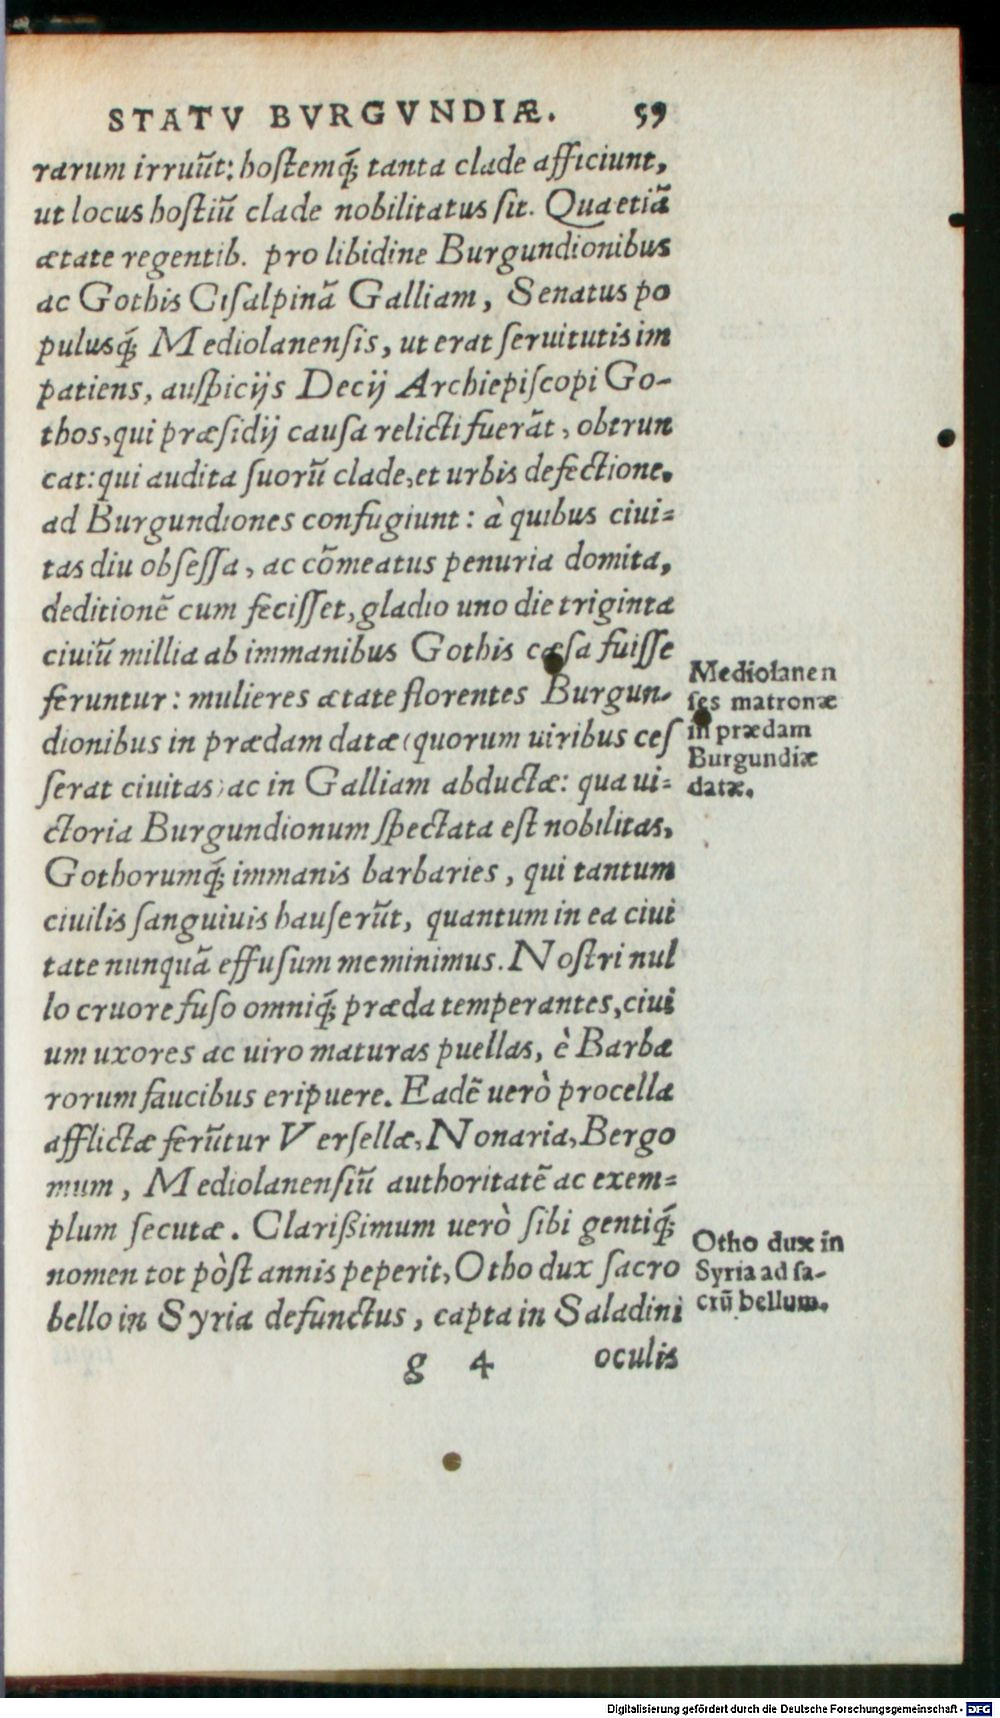 STATV BVRGVNDIÆ. 59
rarum irruũt: hostemq́; tanta clade afficiunt,
ut locus hostiũ clade nobilitatus sit. Qua etiã
ætate regentib. pro libidine Burgundionibus
ac Gothis Cisalpinã Galliam, Senatus po
pulusq́; Mediolanensis, ut erat seruitutis im
patiens, auspicijs Decij Archiepiscopi Go-
thos, qui præsidij causa relicti fuerãt, obtrun
cat: qui audita suorũ clade, et urbis defectione.
ad Burgundiones confugiunt: à quibus ciui=
tas diu obsessa, ac cõmeatus penuria domita,
deditionẽ cum fecisset, gladio uno die triginta
ciuiũ millia ab immanibus Gothis cæsa fuisse
feruntur: mulieres ætate florentes Burgun-
dionibus in prædam datæ (quorum uiribus ces
serat ciuitas) ac in Galliam abductæ: qua ui=
ctoria Burgundionum spectata est nobilitas,
Gothorumq́; immanis barbaries, qui tantum
ciuilis sanguiuis hauserũt, quantum in ea ciui
tate nunquã effusum meminimus. Nostri nul
lo cruore fuso omniq́; præda temperantes, ciui
um uxores ac uiro maturas puellas, è Barba
rorum faucibus eripuere. Eadẽ uerò procella
afflictæ ferũtur Versellæ, Nonaria, Bergo
mum, Mediolanensiũ authoritatẽ ac exem=
plum secutæ. Clarißimum uerò sibi gentiq́;
nomen tot pòst annis peperit, Otho dux sacro
bello in Syria defunctus, capta in Saladini
g 4 oculis
Mediolanen
ses matronæ
in prædam
Burgundiæ
datæ.
Otho dux in
Syria ad sa-
crũ bellum.
Digitalisierung gefördert durch die Deutsche Forschungsgemeinschaft - DFG